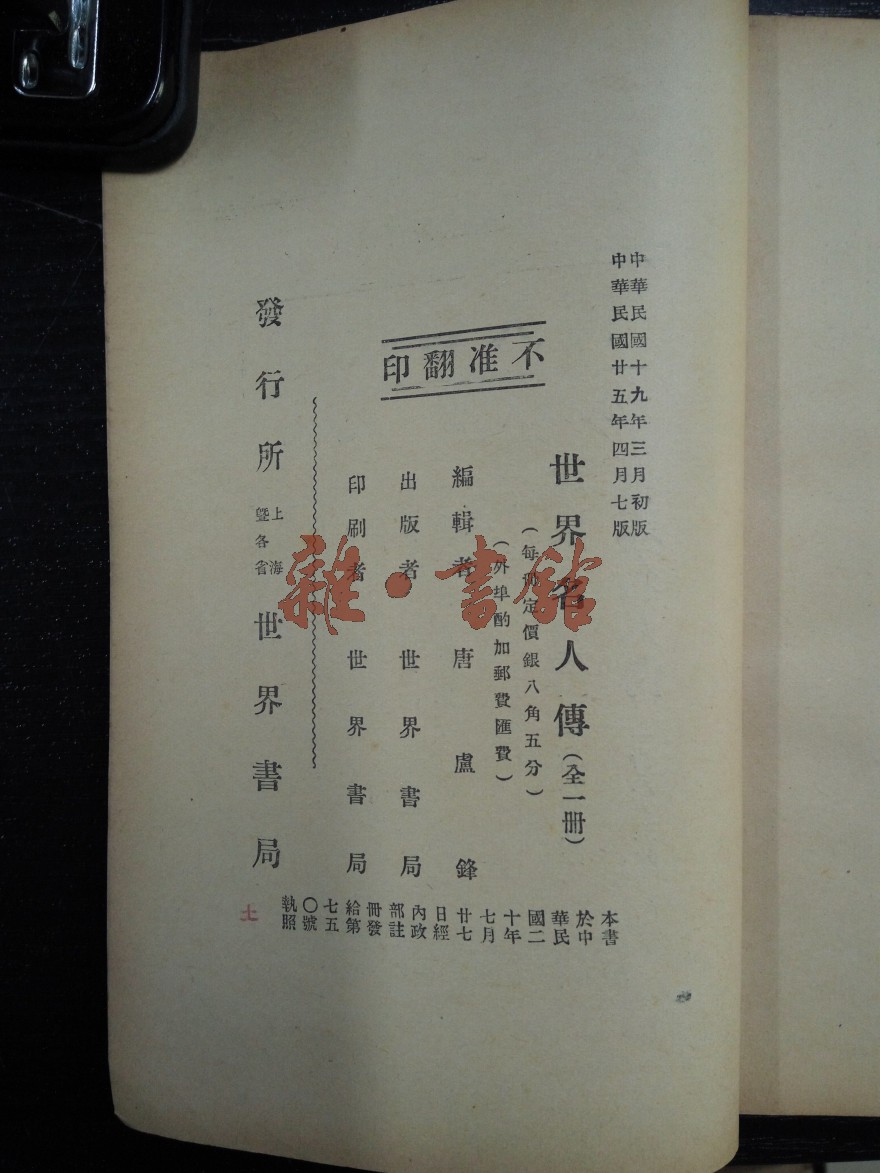 中華民國十九年三月初版
中華民國廿五年四月七版
不准翻印
世界名人傳(全一冊)
(每冊定價銀八角五分)
(外埠酌加郵費匯費)
編輯者 唐盧鋒
出版者 世界書局
印刷者 世界書局
發行所 上海暨各省 世界書局
本書
於中
華民
國二
十年
七月
廿七
日經
內政
部註
冊發
給第
七五
〇號
執照
雜·書館